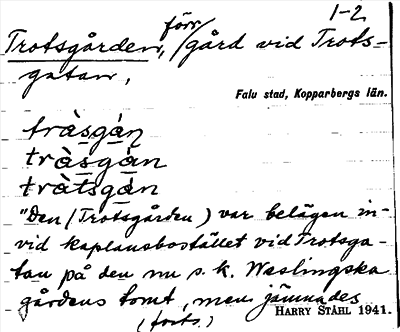 1-2
Trotsgården, förr/gård vid Trots-
gatan,
Falu stad, Kopparbergs län.
tràsgán
tràsgàn
tràtsgàn
"Den (Trotsgården) var belägen in-
vid kaplansbostället vid Trotsga-
tan på den nu s.k. Waslingska
gårdens tomt, men jämnades
HARRY STÅHL 1941.
(forts.)